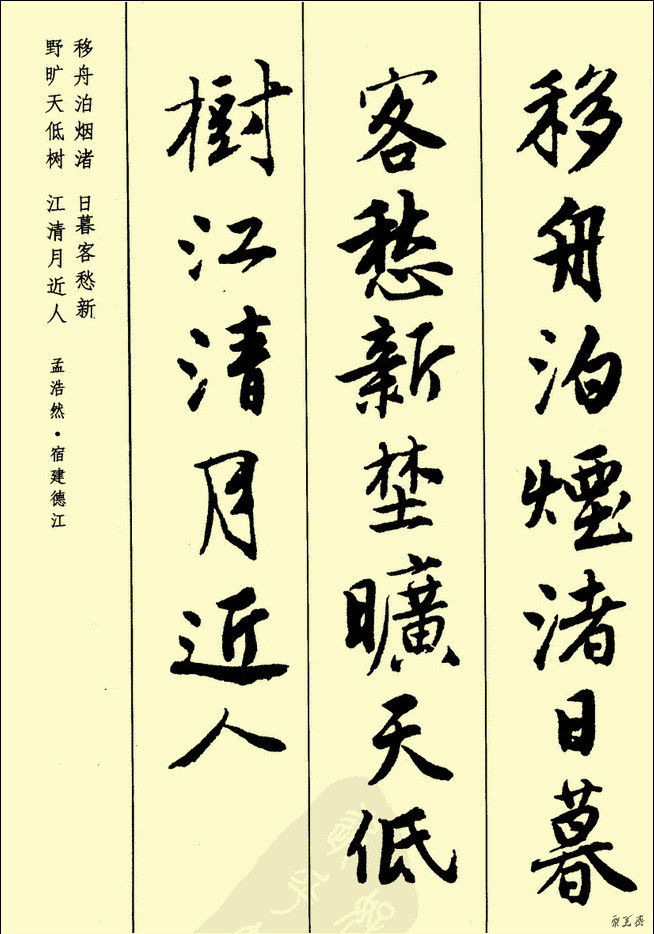 移舟泊煙渚日暮
客愁新埜曠天低
樹江清月近人
移舟泊烟渚 日暮客愁新
野旷天低树 江清月近人
孟浩然·宿建德江